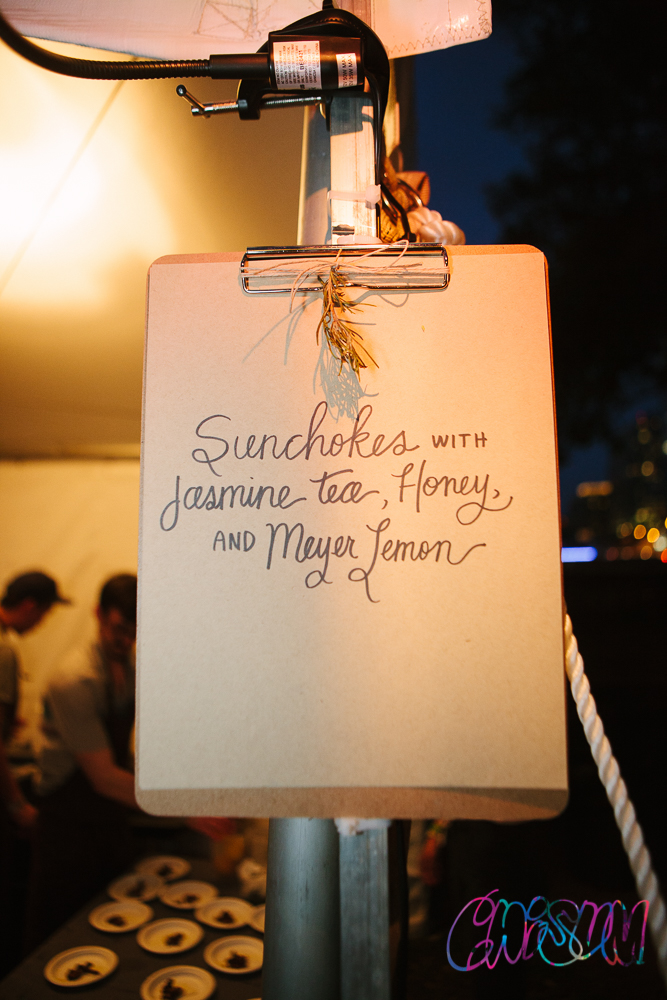 Sunchokes WITH
Jasmine tea, Honey,
AND Meyer Lemon